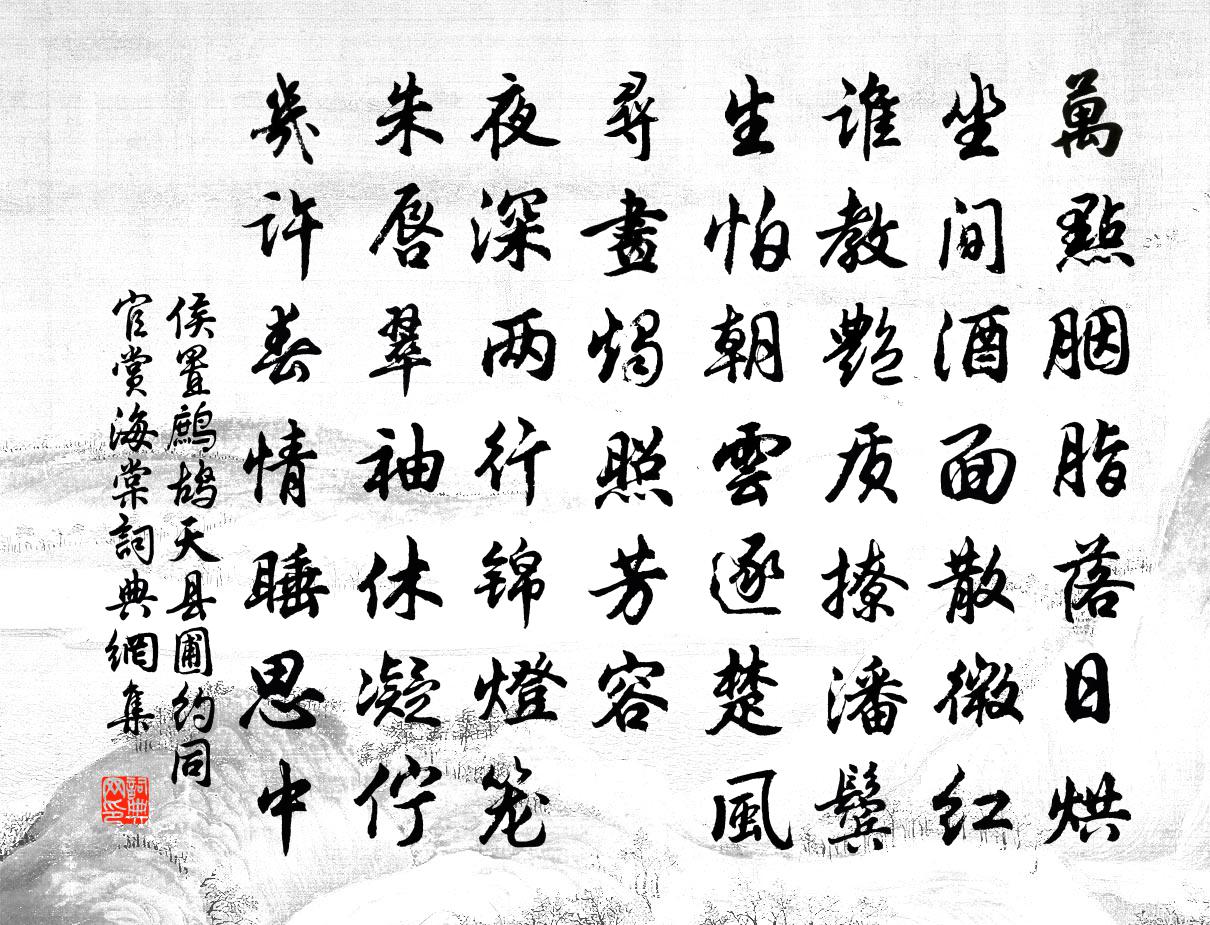 萬點胭脂落日烘
坐间酒面散微红
谁教艷质撩潘鬓
生怕朝雲逐楚風
尋畫燭照芳容
夜深两行锦燈笼
朱唇翠袖休凝佇
幾许春情睡思中
侯置鷓鴣天县圃约同
官赏海棠詞典網集
詞典网印